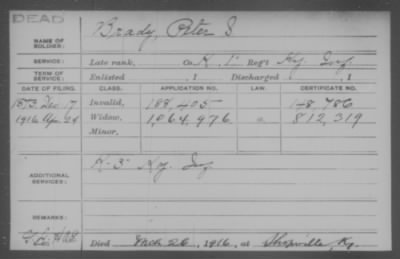 DEAD
NAME OF SOLDIER: Brady, Peter S
SERVICE: Late rank, Co. K, 1" Reg't Ky Inf.
TERM OF SERVICE: Enlisted , 1 Discharged , 1
DATE OF FILING. CLASS. APPLICATION NO. LAW. CERTIFICATE NO.
1873 Dec. 17 Invalid, 188,405 148,786
1916 Apr. 24 Widow, 1,064,976 812,319
Minor,
ADDITIONAL SERVICES: K-3" Ky Inf.
REMARKS:
Died Mch 26, 1916, at Shopville, Ky.